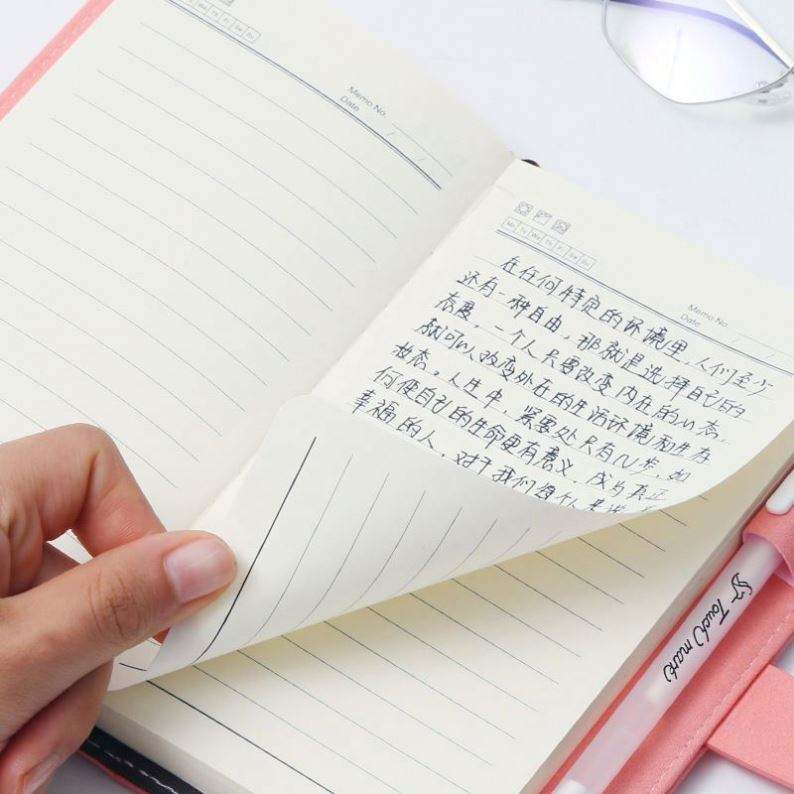 Mo Tu We Th Fr Sa Su
Memo No.
Date / /
Mo Tu We Th Fr Sa Su
Memo No.
Date / /
在任何特定的环境里,人们至少
还有一种自由,那就是选择自己的
态度。一个人只要改变内在的心态,
就可以改变外在的生活环境和生存
状态。人生中,紧要处只有几步,如
何使自己的生命更有意义,成为真正
幸福的人,对于我们每个人来说
Touch mark